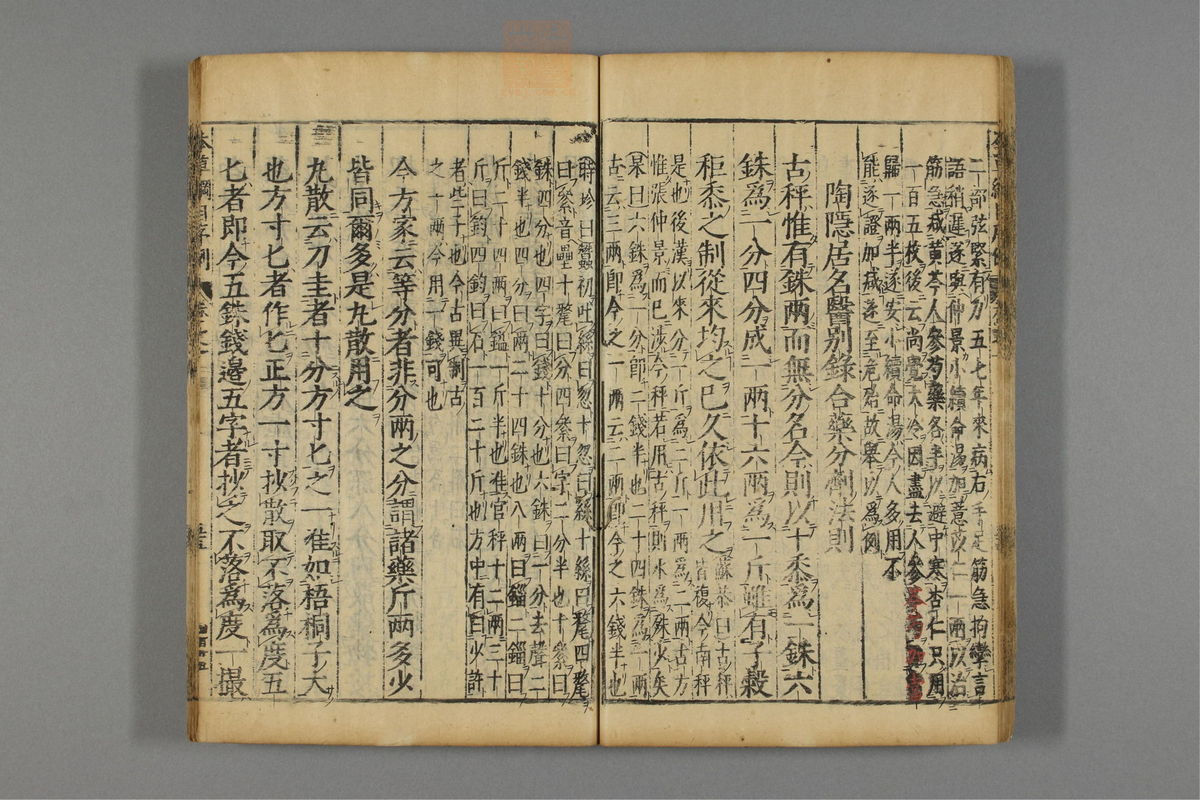 二部弦緊有力五七年來病右手足筋急拘攣言
語稍遲遂與仲景小續命湯加薏苡仁一兩以治
筋急減黄芩人參芍藥各半以避中寒杏仁只用
一百五枚後云尚覺大冷因盡去人參芍藥黄芩
歸一兩半遂安小續命湯今人多用不
能逐證加減遂至危殆故舉以爲例
陶隱居名醫別錄合藥分劑法則
古秤惟有銖兩而無分名今則以十黍爲一銖六
銖爲一分四分成一兩十六兩爲一斤雖有子穀
秬黍之制從來均之已久依此用之
蘇恭曰古秤
皆復今南秤
是也後漢以來分一斤爲二斤一兩爲二兩古方
惟張仲景而已涉今秤若用古秤則水爲殊少矣
杲曰六銖爲一分即二錢半也二十四銖爲一兩
古云三兩即今之一兩云二兩即今之六錢半也
時珍曰蠶初吐絲曰忽十忽曰絲十絲曰氂四氂
曰絫音壘十氂曰分四絫曰字二分半也十絫曰
銖四分也四字曰錢十分也六銖曰一分去聲二
錢半也四分曰兩二十四銖也八兩曰錙二錙曰
斤二十四兩曰鎰一斤半也准官秤十二兩三十
斤曰鈞四鈞曰石一百二十斤也方中有曰少許
者些子也今古異制古
之一兩今用一錢可也
今方家云等分者非分兩之分謂諸藥斤兩多少
皆同爾多是丸散用之
丸散云刀圭者十分方寸匕之一准如梧桐子大
也方寸匕者作匕正方一寸抄散取不落爲度五
匕者即今五銖錢邊五字者抄之不落爲度一撮
本草綱目序例
卷之一